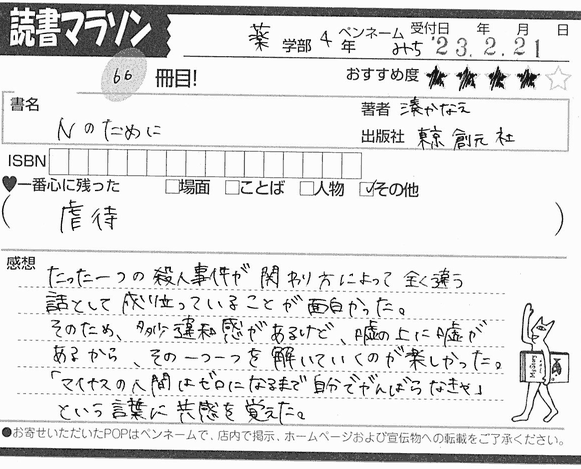 読書マラソン
薬 学部 4 年 ペンネーム みち 受付日 年 月 日 '23.2.21
66 冊目! おすすめ度 ★★★★☆
書名 Nのために
著者 湊かなえ
出版社 東京創元社
ISBN
♥一番心に残った □場面 □ことば □人物 ☑その他
(虐待)
感想 たった一つの殺人事件が関わり方によって全く違う
話として成り立っていることが面白かった。
そのため、多少違和感があるけど、嘘の上に嘘が
あるから、その一つ一つを解いていくのが楽しかった。
「マイナスの人間はゼロになるまで自分でがんばらなきゃ」
という言葉に共感を覚えた。
●お寄せいただいたPOPはペンネームで、店内で掲示、ホームページおよび宣伝物への転載をご了承ください。